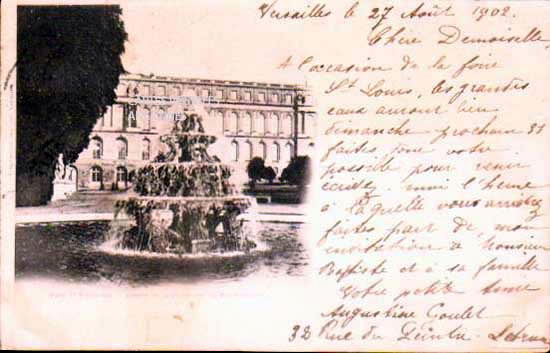 Versailles le 27 Août 1902.
Chère Demoiselle
A l'occasion de la foire
St Louis, les grandes
eaux auront lieu
dimanche prochain 31
faites donc votre
possible pour venir
écrivez moi l'heure
à laquelle vous arrivez
faites part de mon
invitation à Monsieur
Baptiste et à sa famille
Votre petite amie
Augustine Goulet
32 Rue du Peintre Lebrun